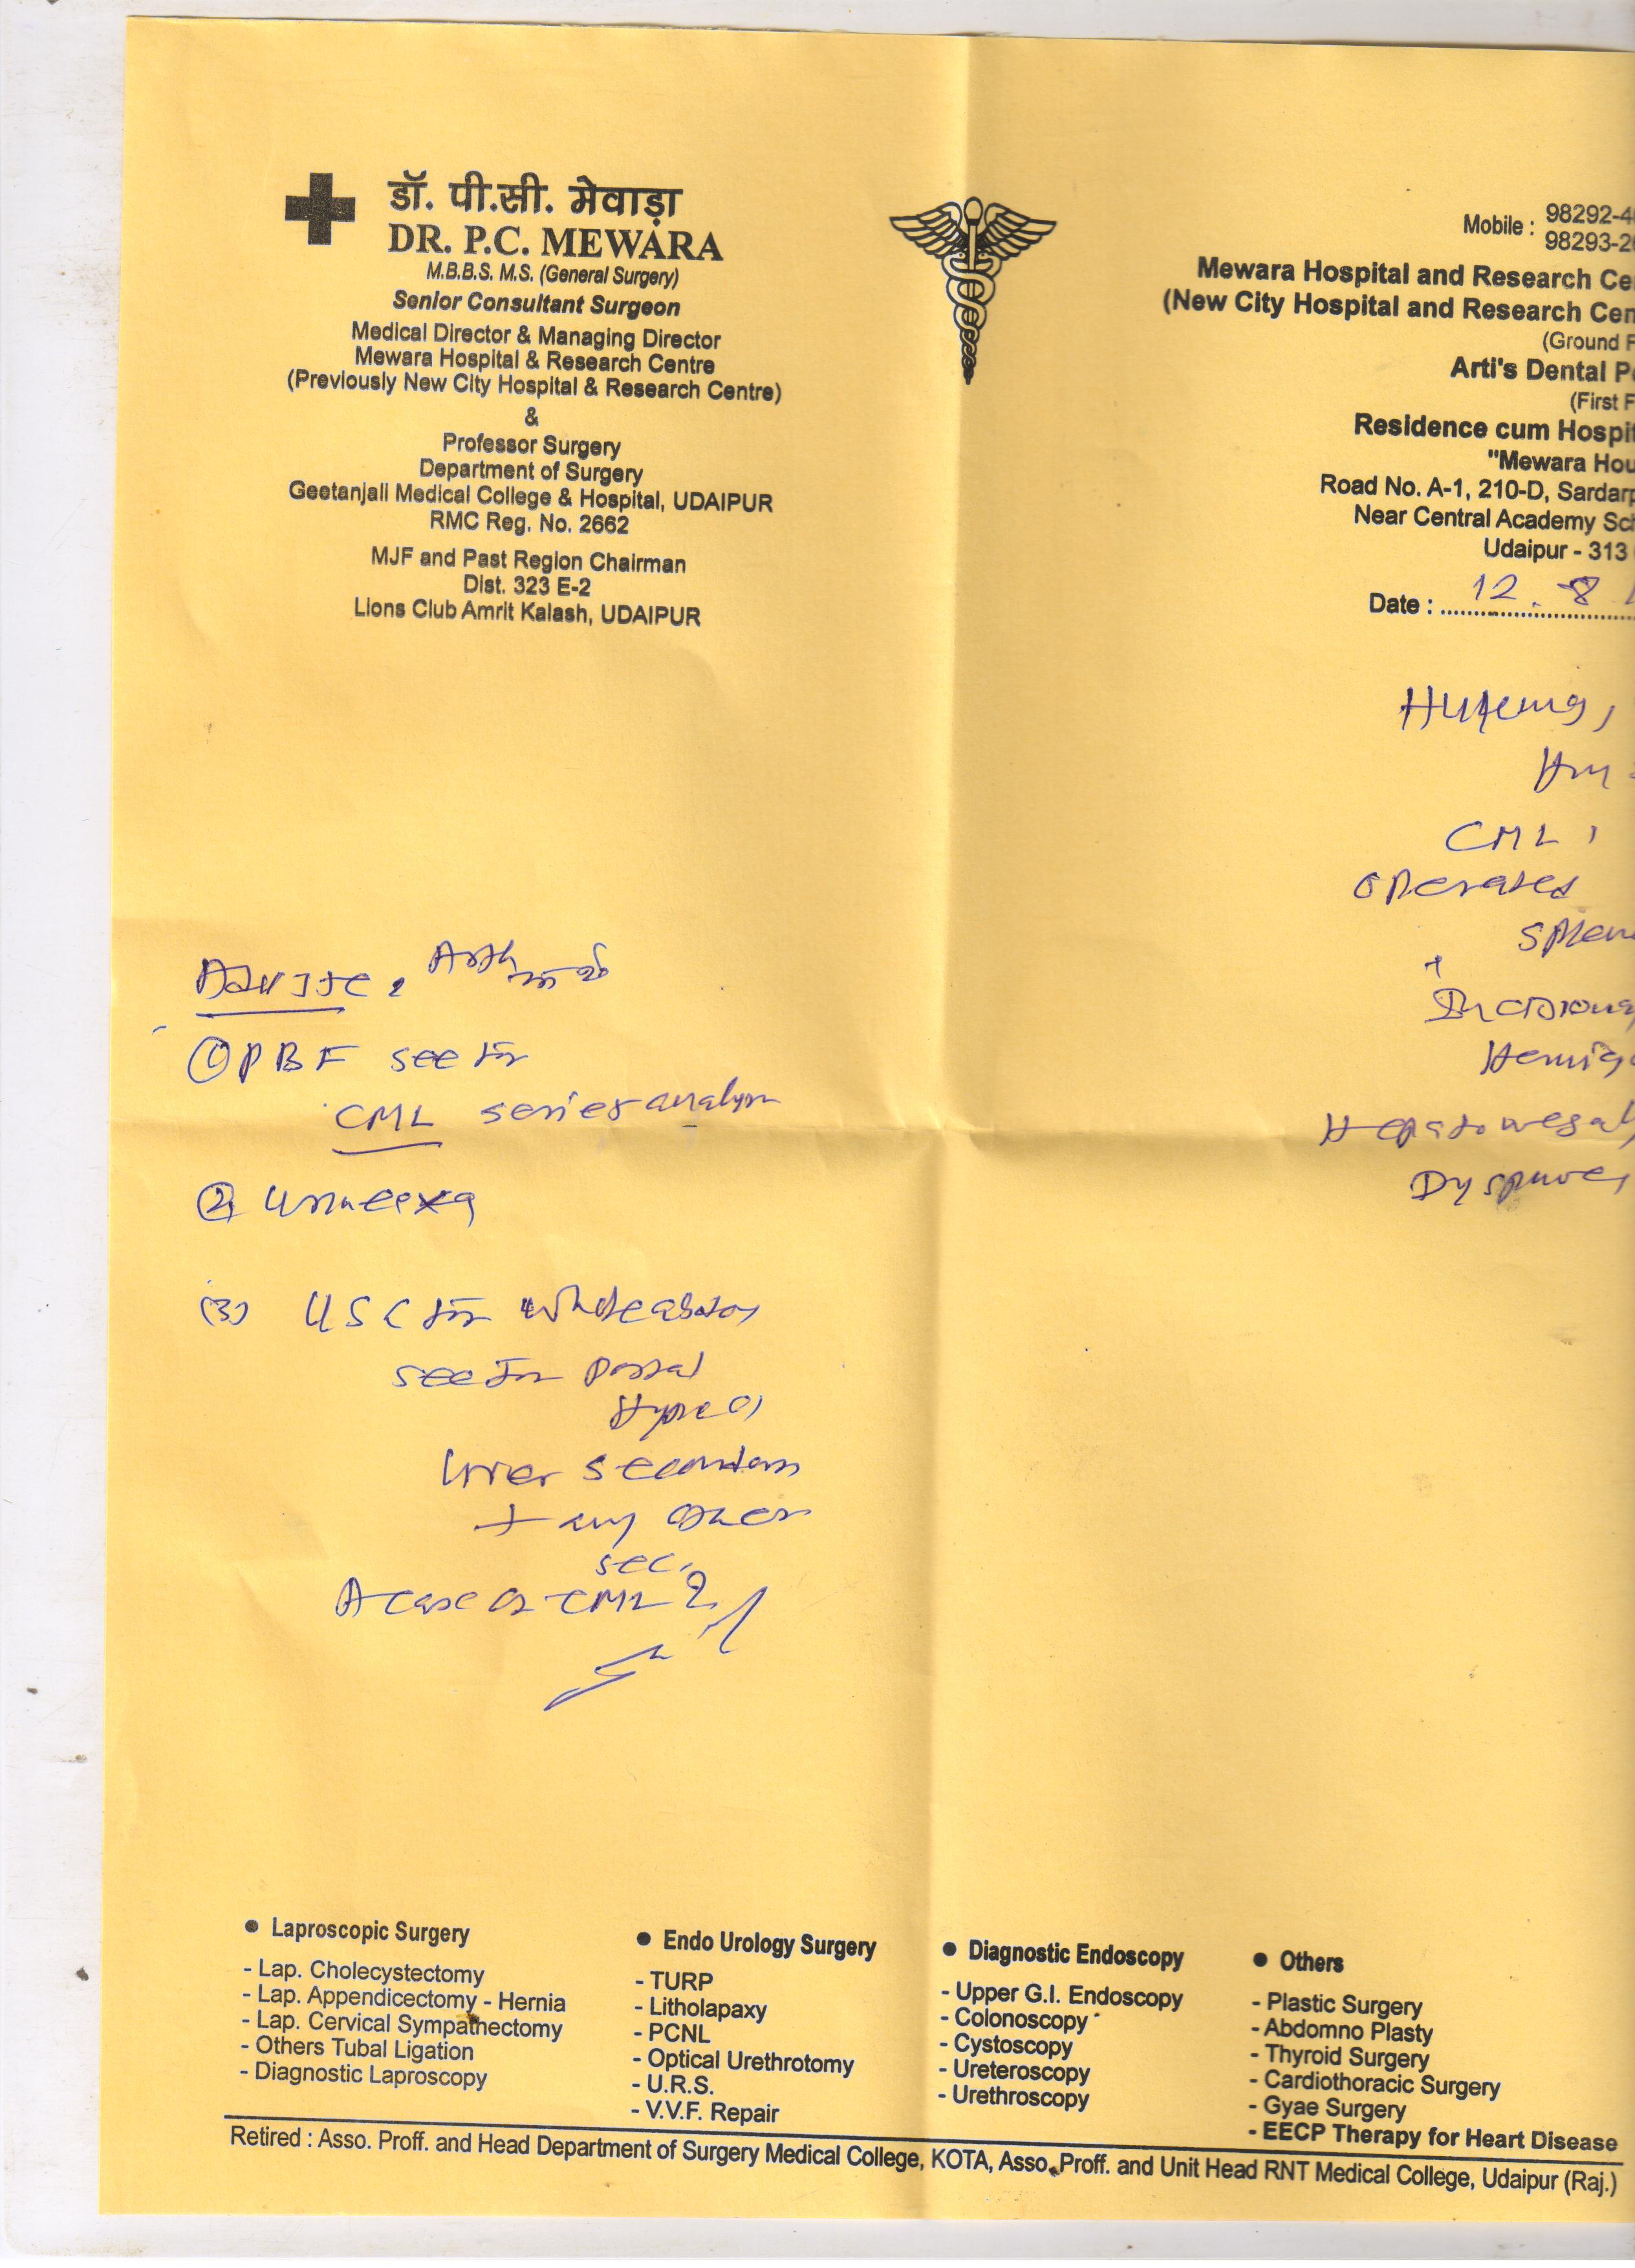 डॉ. पी.सी. मेवाड़ा
DR. P.C. MEWARA
M.B.B.S. M.S. (General Surgery)
Senior Consultant Surgeon
Medical Director & Managing Director
Mewara Hospital & Research Centre
(Previously New City Hospital & Research Centre)
&
Professor Surgery
Department of Surgery
Geetanjali Medical College & Hospital, UDAIPUR
RMC Reg. No. 2662
MJF and Past Region Chairman
Dist. 323 E-2
Lions Club Amrit Kalash, UDAIPUR
Mobile : 98292-4
98293-2
Mewara Hospital and Research Ce
(New City Hospital and Research Cen
(Ground F
Arti's Dental P
(First F
Residence cum Hospit
"Mewara Hou
Road No. A-1, 210-D, Sardarp
Near Central Academy Sc
Udaipur - 313
Date : 12.8
CML
operated
Splen
+
Incisiona
Hernia
Hepatomegaly
Dyspnoe
Advise
① PBF see for
CML series analysis
②
(3) USG for whole abdo
see for portal
Hyper
liver secondary
+ any other
sec.
A case of CML ?
● Laproscopic Surgery
- Lap. Cholecystectomy
- Lap. Appendicectomy - Hernia
- Lap. Cervical Sympathectomy
- Others Tubal Ligation
- Diagnostic Laproscopy
● Endo Urology Surgery
- TURP
- Litholapaxy
- PCNL
- Optical Urethrotomy
- U.R.S.
- V.V.F. Repair
● Diagnostic Endoscopy
- Upper G.I. Endoscopy
- Colonoscopy
- Cystoscopy
- Ureteroscopy
- Urethroscopy
● Others
- Plastic Surgery
- Abdomno Plasty
- Thyroid Surgery
- Cardiothoracic Surgery
- Gyae Surgery
- EECP Therapy for Heart Disease
Retired : Asso. Proff. and Head Department of Surgery Medical College, KOTA, Asso. Proff. and Unit Head RNT Medical College, Udaipur (Raj.)